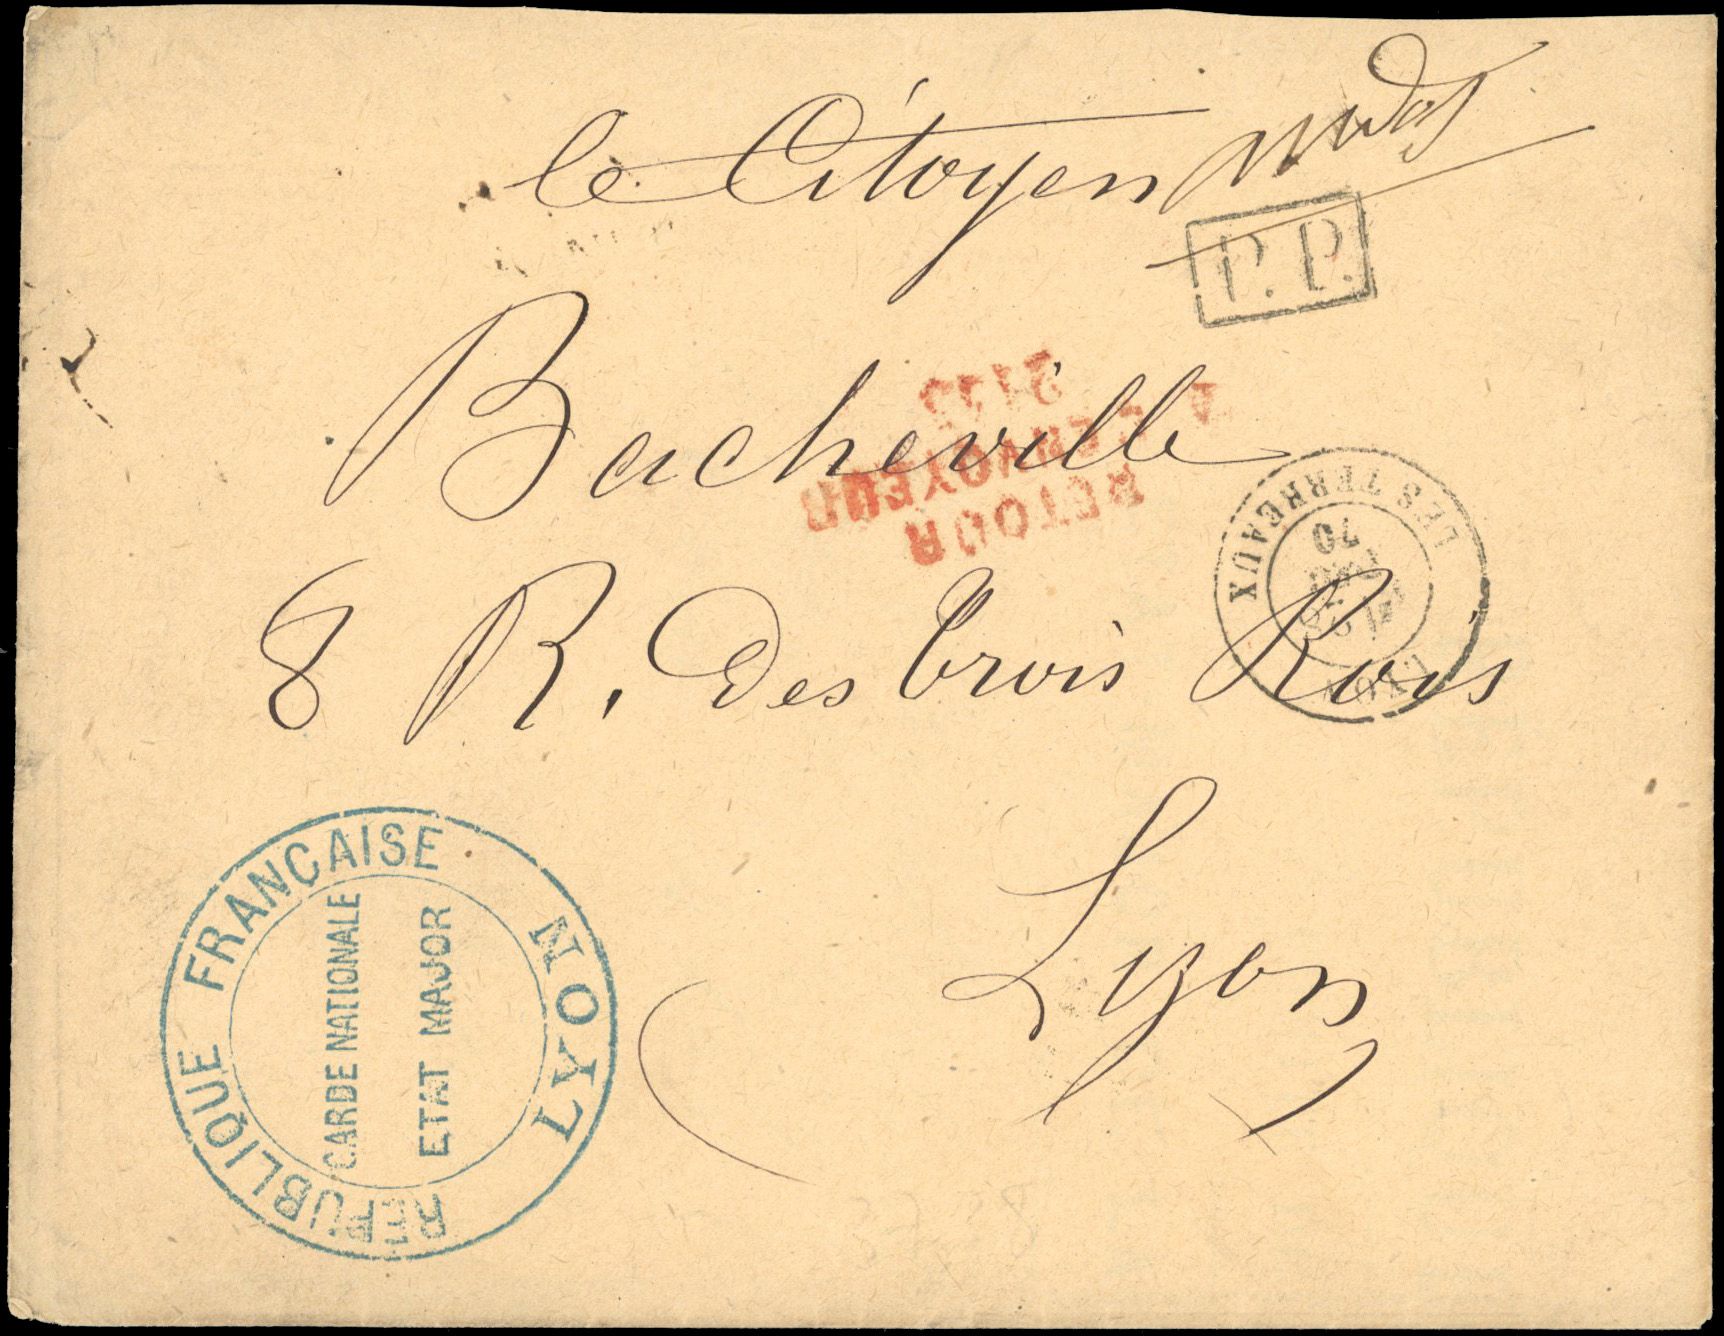 le Citoyen
P.P.
Bacheville
RETOUR
A L'ENVOYEUR
2125
8 R. des Trois Rois
LYON
LES TERREAUX
70
Lyon
REPUBLIQUE FRANCAISE
GARDE NATIONALE
ETAT MAJOR
LYON